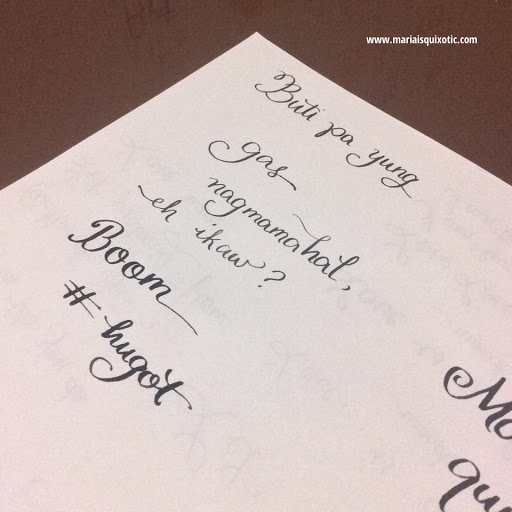 www.mariaisquixotic.com
Buti pa yung
gas
nagmamahal,
eh ikaw?
Boom
#hugot
Mo
qu